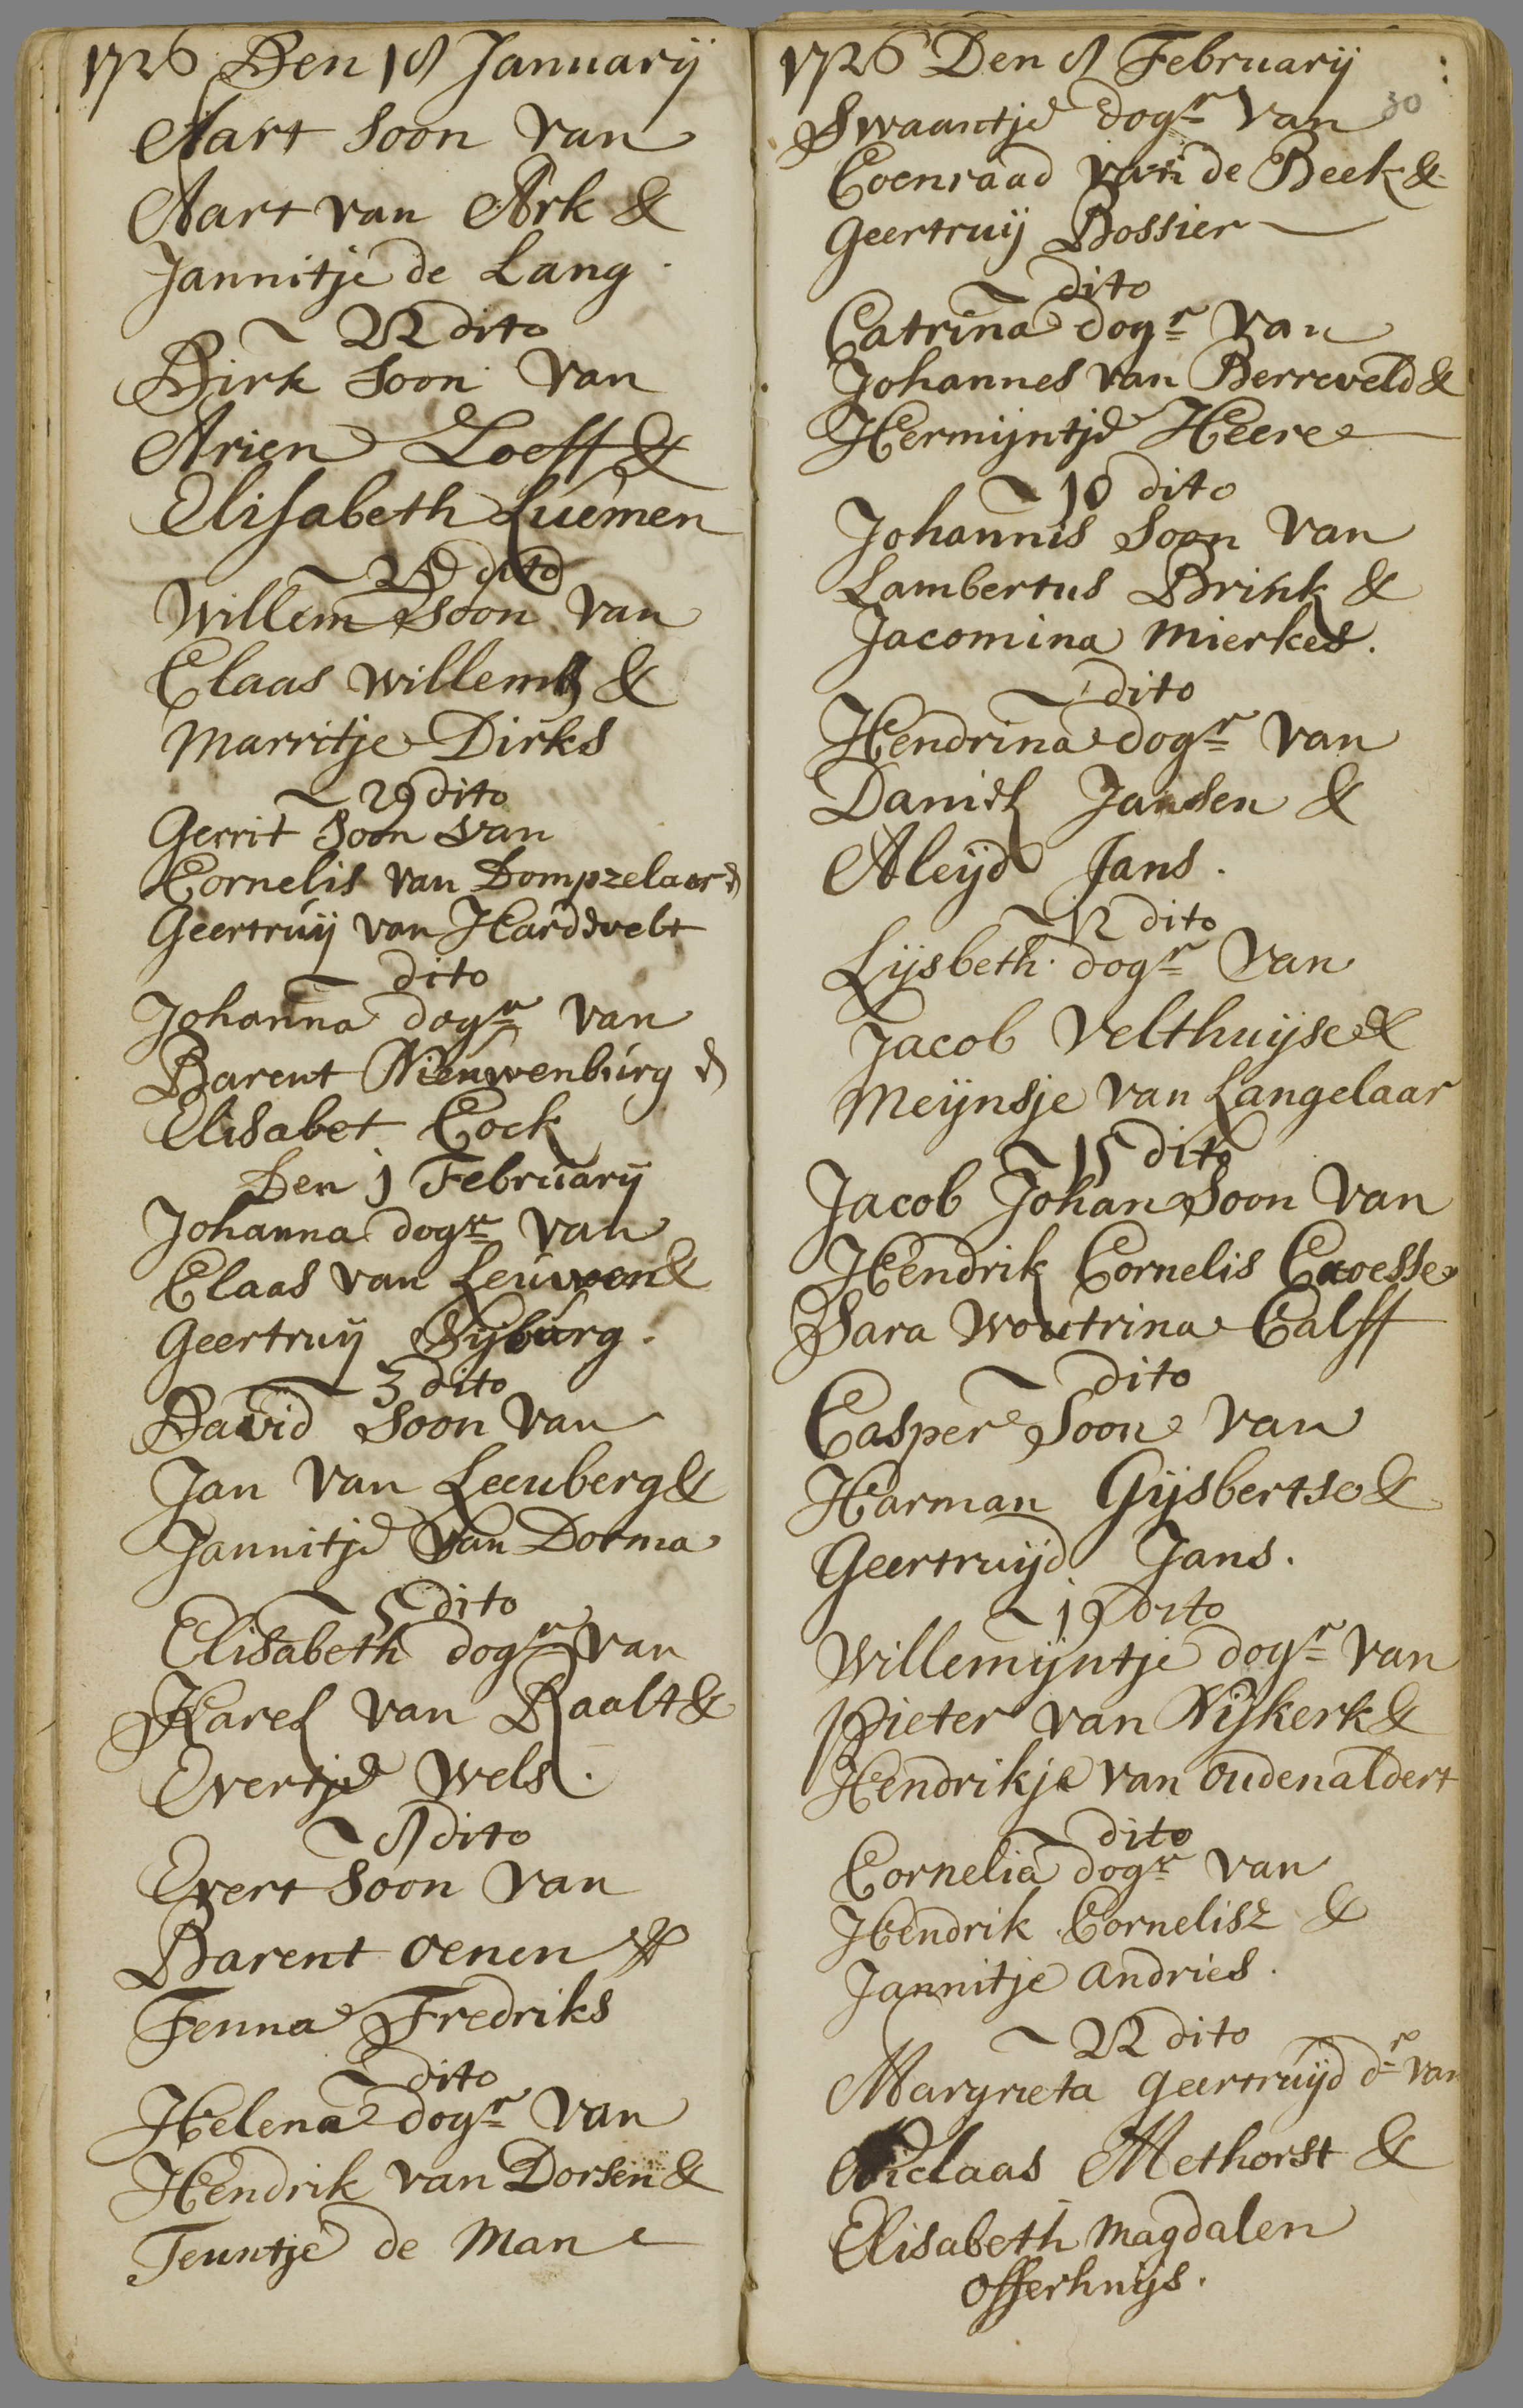 1726 Den 18 Januarij
Aart soon van
Aart van Ark &
Jannitje de Lang
~ 22 dito
Dirk soon van
Arien Loeff &
Elisabeth Luemen
~ 25 dito
Willem soon van
Claas Willems &
Marritje Dirks
~ 29 dito
Gerrit soon van
Cornelis van Dompzelaar &
Geertruij van Hardevelt
~ dito
Johanna dogr van
Barent Nieuwenburg &
Elisabet Cock
Den 1 Februarij
Johanna dogr van
Claas van Leuwen &
Geertruij Nyburg.
~ 3 dito
David soon van
Jan van Leeuberg &
Jannitje van Dorma
~ 5 dito
Elisabeth dogr van
Karel van Raalt &
Evertje Wels.
~ 8 dito
Evert soon van
Barent Oenen &
Fenna Fredriks
~ dito
Helena dogr van
Hendrik van Dorsen &
Teuntje de Man
1726 Den 8 Februarij
30
Swaantje dogr van
Coenraad van de Beek &
Geertruij Bossier
~ dito
Catrina dogr van
Johannes van Berreveld &
Hermijntje Heere
~ 10 dito
Johannis soon van
Lambertus Brink &
Jacomina Mierkes.
~ dito
Hendrina dogr van
Daniel Jansen &
Aleijd Jans.
~ 12 dito
Lijsbeth dogr van
Jacob Velthuijse &
Meijnsje van Langelaar
~ 15 dito
Jacob Johan soon van
Hendrik Cornelis
Sara Woutrina Calff
~ dito
Casper soon van
Harman Gijsbertse &
Geertruijd Jans.
~ 19 dito
Willemijntje dogr van
Pieter van Nijkerk &
Hendrikje van Oudenaldert
~ dito
Cornelia dogr van
Hendrik Cornelisz &
Jannitje Andries.
~ 22 dito
Margrieta Geertruijd dr van
Niclaas Methorst &
Elisabeth Magdalen
Offerhuijs.